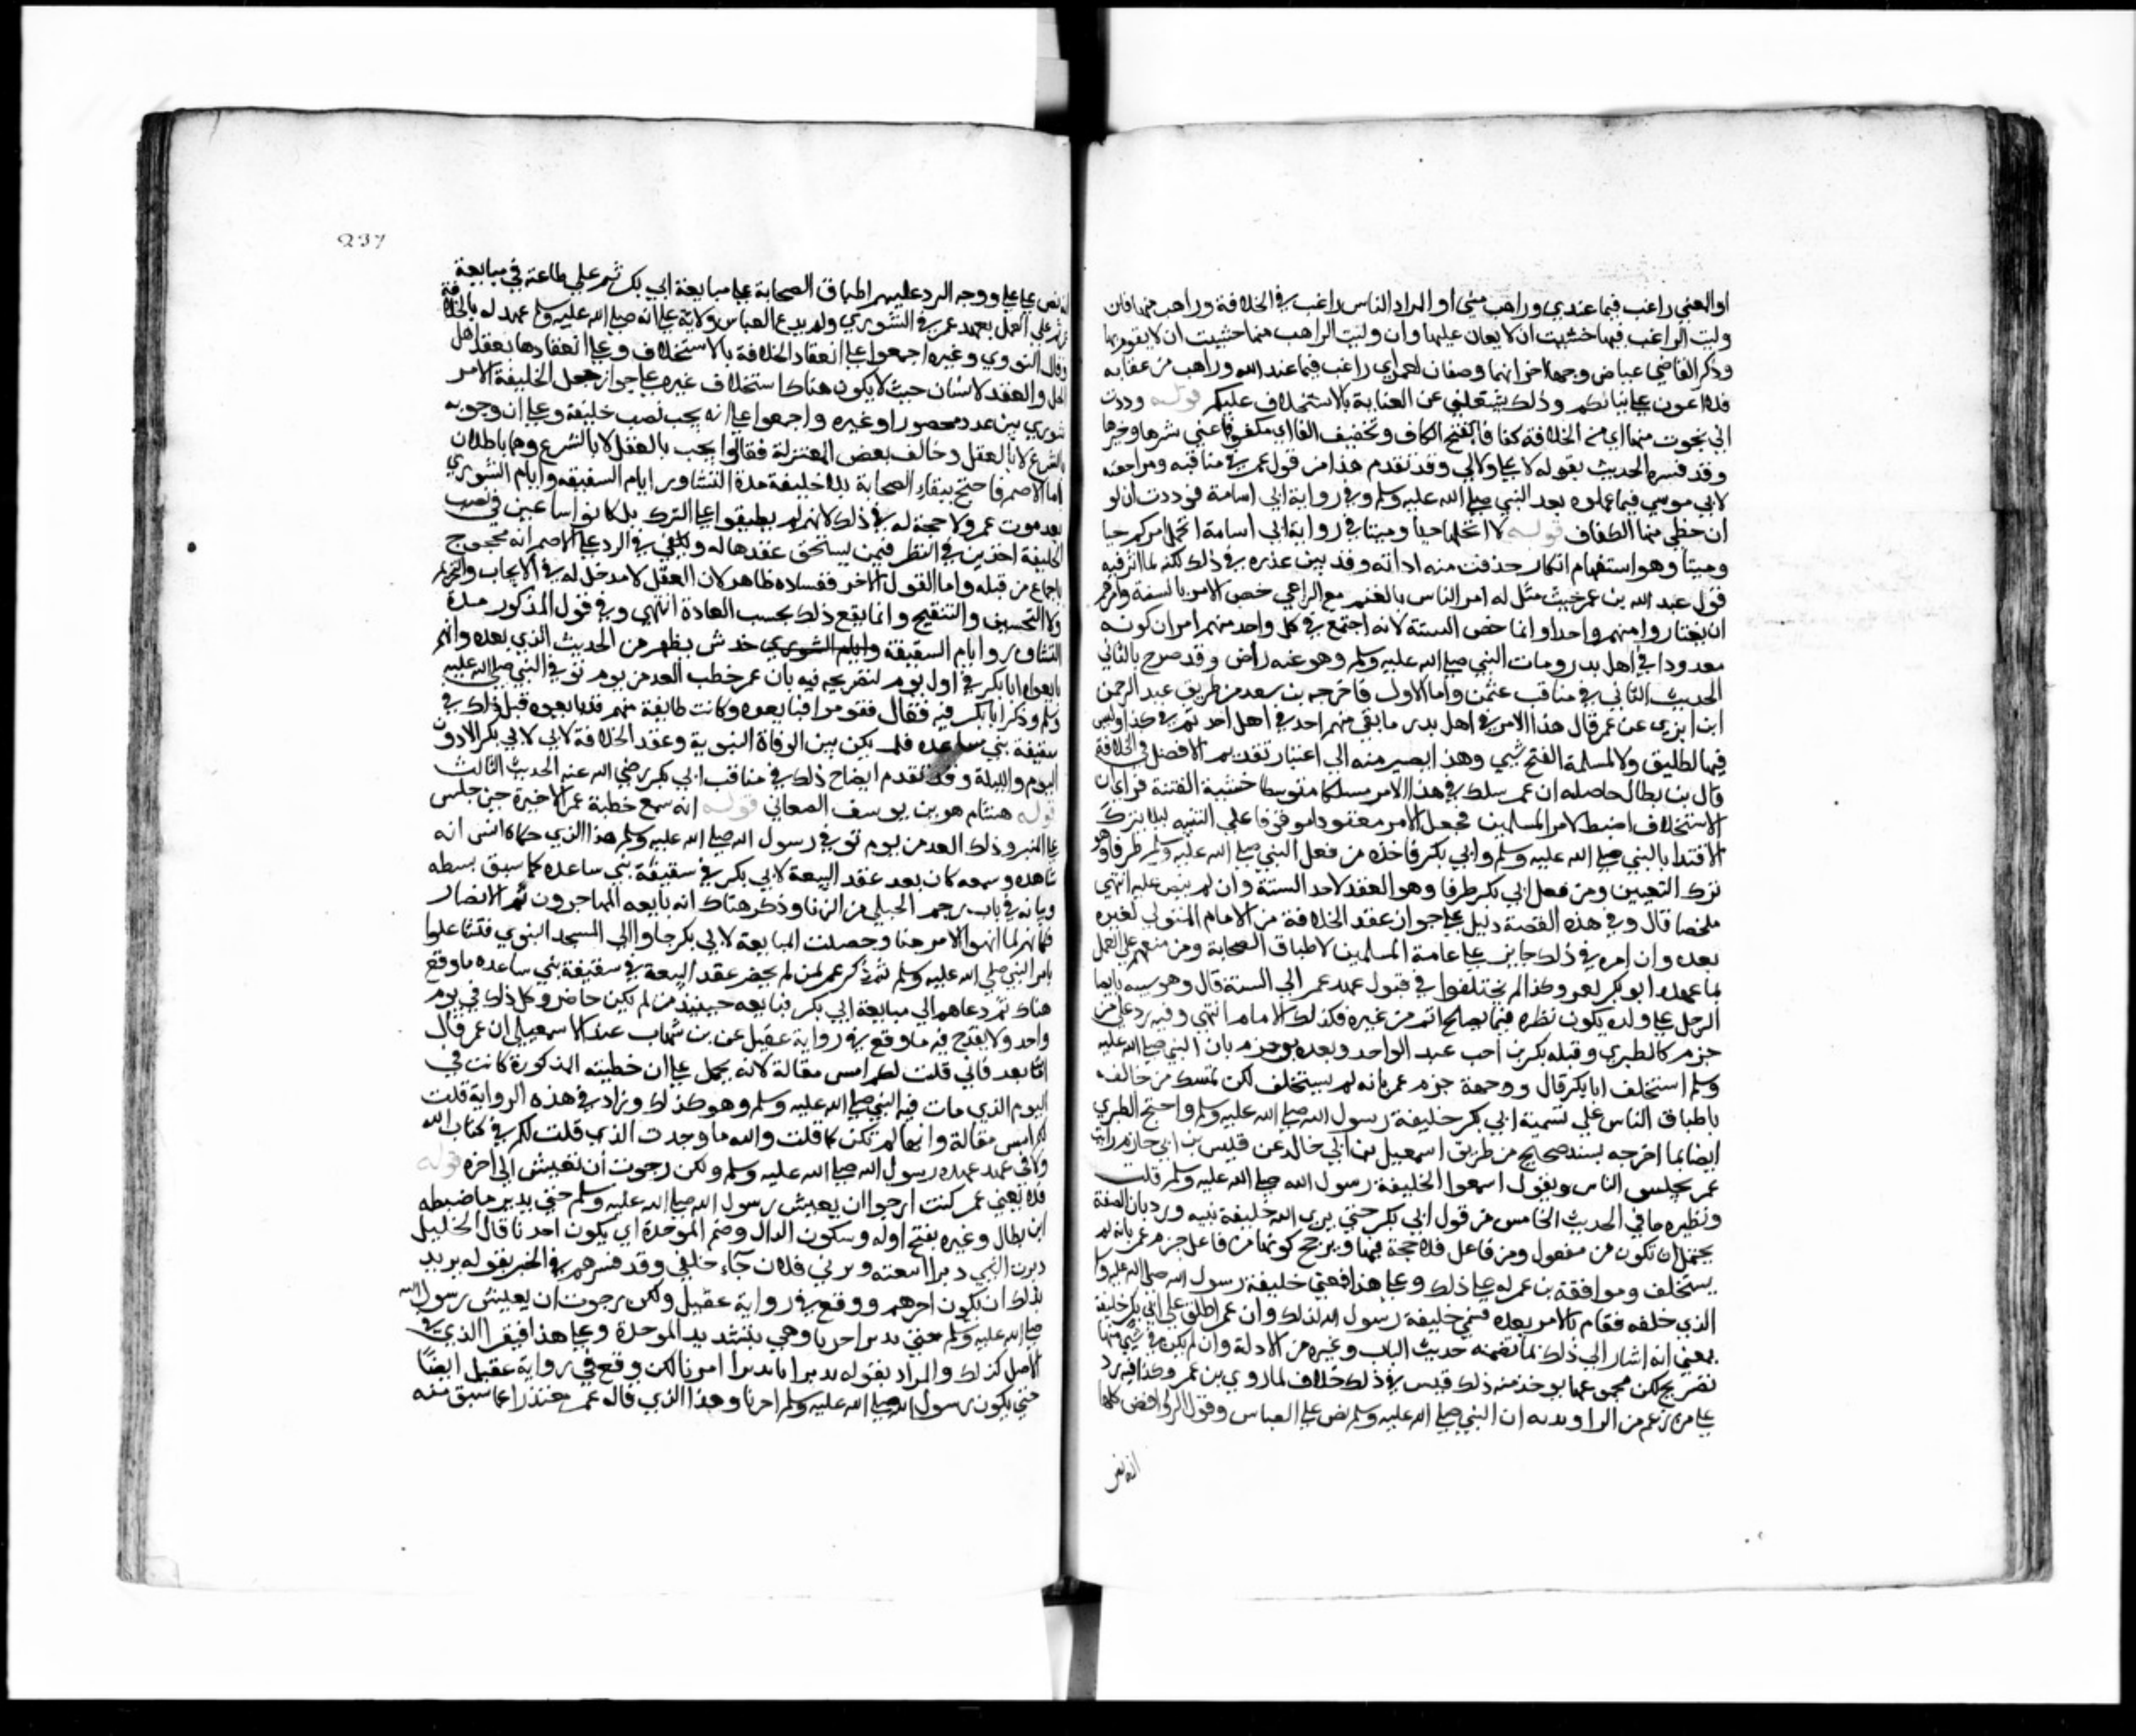 او المعني راغب فيما عندي وراهب مني او المراد الناس راغب في الخلافة وراهب منها فان
وليت الراغب فيها خشيت ان لا يعان عليها وان وليت الراهب منها خشيت ان لا يقوم بها
وذكر القاضي عياض وجها اخر انهما وصفان لعمر اي راغب فيما عند الله وراهب من عقابه
فلا اعول علي ثنائكم وذلك يشغلني عن العناية بالاستخلاف عليكم قوله وددت
اني نجوت منها اي من الخلافة كفافا بفتح الكاف وتخفيف الفا اي مكفوفا عني شرها وخيرها
وقد فسره الحديث بقوله لا علي ولا لي وقد تقدم هذا من قول عمر في مناقبه ومراجعته
لابي موسي فيما عملوه بعد النبي صلي الله عليه وسلم وفي رواية ابي اسامة فوددت ان لو
ان حظي منها الكفاف قوله لا اتحملها حيا وميتا في رواية ابي اسامة اتحمل امركم حيا
وميتا وهو استفهام انكار حذفت منه اداته وقد بين عذره في ذلك لكنه لما اثر فيه
قول عبد الله بن عمر حيث مثل له امر الناس بالغنم مع الراعي خص الامر بالستة وامرهم
ان يختاروا منهم واحدا وانما خص الستة لانه اجتمع في كل واحد منهم امران كونه
معدودا في اهل بدر ومات النبي صلي الله عليه وسلم وهو عنه راض وقد صرح بالثاني
الحديث الثاني في مناقب عثمن واما الاول فاخرجه بن سعد من طريق عبد الرحمن
ابن ابزي عن عمر قال هذا الامر في اهل بدر ما بقي منهم احد ثم في اهل احد ثم في كذا وليس
فيها لطليق ولا لمسلمة الفتح شي وهذا يصير منه الي اعتبار تقديم الافضل في الخلافة
قال بن بطال حاصله ان عمر سلك في هذا الامر مسلكا متوسطا خشية الفتنة فراي ان
الاستخلاف اضبط لامر المسلمين فجعل الامر معقودا موقوفا علي الستة ليلا يترك
الاقتدا بالنبي صلي الله عليه وسلم وابي بكر فاخذ من فعل النبي صلي الله عليه وسلم طرفا وهو
ترك التعيين ومن فعل ابي بكر طرفا وهو العقد لاحد الستة وان لم ينص عليه انتهي
ملخصا قال وفي هذه القصة دليل علي جواز عقد الخلافة من الامام المتولي لغيره
بعده وان امره في ذلك جايز علي عامة المسلمين لاطباق الصحابة ومن معهم علي العمل
بما عهده ابو بكر لعمر وكذا لم يختلفوا في قبول عهد عمر الي الستة قال وهو شبيه بايصا
الرجل علي ولده يكون نظره فيما يصلح اتم من غيره فكذلك الامام انتهي وفيه رد علي من
جزم كالطبري وقبله بكر بن اخت عبد الواحد وبعده بن حزم بان النبي صلي الله عليه
وسلم استخلف ابا بكر قال ووجهه جزم عمر بانه لم يستخلف لكن تمسك من خالفه
باطباق الناس علي تسمية ابي بكر خليفة رسول الله صلي الله عليه وسلم واحتج الطبري
ايضا بما اخرجه بسند صحيح من طريق اسمعيل بن ابي خالد عن قيس بن ابي حازم رايت
عمر يجلس الناس ويقول اسمعوا لخليفة رسول الله صلي الله عليه وسلم قلت
ونظيره ما في الحديث الخامس من قول ابي بكر حتي يري الله خليفة نبيه ورد بان الصفة
يحتمل ان تكون من مفعول ومن فاعل فلا حجة فيها ويترجح كونها من فاعل جزم عمر بانه لم
يستخلف وموافقة بن عمر له علي ذلك وعلي هذا فمعني خليفة رسول الله صلي الله عليه وسلم
الذي خلفه فقام بالامر بعده فسمي خليفة رسول الله لذلك وان عمر اطلق علي ابي بكر خليفة
بمعني انه اشار الي ذلك بما تضمنه حديث الباب وغيره من الادلة وان لم يكن في شي منها
تصريح لكن مجموعها يوخذ منه ذلك فليس في ذلك خلاف لما روي بن عمر وكذا فيه رد
علي من زعم من الراوندية ان النبي صلي الله عليه وسلم نص علي العباس وقول الروافض كلها
انه نص
237
انه نص علي علي ووجه الرد عليهم اطباق الصحابة علي مبايعة ابي بكر ثم علي طاعته في مبايعة
عمر ثم علي العمل بعهد عمر في الشوري ولم يدع العباس ولا علي انه صلي الله عليه وسلم عهد له بالخلافة
وقال النووي وغيره اجمعوا علي انعقاد الخلافة بالاستخلاف وعلي انعقادها بعقد اهل
الحل والعقد لانسان حيث لا يكون هناك استخلاف غيره وعلي جواز جعل الخليفة الامر
شوري بين عدد محصور او غيره واجمعوا علي انه يجب نصب خليفة وعلي ان وجوبه
بالشرع لا بالعقل وخالف بعض المعتزلة فقالوا يجب بالعقل لا بالشرع وهما باطلان
اما الاصم فاحتج ببقاء الصحابة بلا خليفة مدة التشاور ايام السقيفة وايام الشوري
بعد موت عمر ولا حجة له في ذلك لانهم لم يطبقوا علي الترك بل كانوا ساعين في نصب
الخليفة اخذين في النظر فيمن يستحق عقدها له ويكفي في الرد علي الاصم انه محجوج
باجماع من قبله واما القول الاخر ففساده ظاهر لان العقل لا مدخل له في الايجاب والتحريم
ولا التحسين والتقبيح وانما يقع ذلك بحسب العادة انتهي وفي قول المذكور مدة
التشاور وايام السقيفة وايام الشوري خدش يظهر من الحديث الذي بعده وانهم
بايعوا ابا بكر في اول يوم لتصريحه فيه بان عمر خطب الغد من يوم توفي النبي صلي الله عليه
وسلم وذكر ابا بكر فيه فقال فقوموا فبايعوه وكانت طايفة منهم قد بايعوه قبل ذلك في
سقيفة بني ساعده فلم يكن بين الوفاة النبوية وعقد الخلافة لابي لابي بكر الا دون
اليوم والليلة وقد تقدم ايضاح ذلك في مناقب ابي بكر رضي الله عنه الحديث الثالث
قوله هشام هو بن يوسف الصعاني قوله انه سمع خطبة عمر الاخيرة حين جلس
علي المنبر وذلك الغد من يوم توفي رسول الله صلي الله عليه وسلم هذا الذي حكاه انس انه
شاهده وسمعه كان بعد عقد البيعة لابي بكر في سقيفة بني ساعده كما سبق بسطه
وبيانه في باب رجم الحبلي من الزنا وذكر هناك انه بايعه المهاجرون ثم الانصار
فكانهم لما انهوا الامر هنا وحصلت المبايعة لابي بكر جاوا الي المسجد النبوي فتشاغلوا
بامر النبي صلي الله عليه وسلم ثم ذكر عمر لمن لم يحضر عقد البيعة في سقيفة بني ساعده ما وقع
هناك ثم دعاهم الي مبايعة ابي بكر فبايعه حينيذ من لم يكن حاضرا وكل ذلك في يوم
واحد ولا يقدح فيه ما وقع في رواية عقيل عن بن شهاب عند الاسمعيلي ان عمر قال
اما بعد فاني قلت لكم امس مقالة لانه يحمل علي ان خطبته المذكورة كانت في
اليوم الذي مات فيه النبي صلي الله عليه وسلم وهو كذلك وزاد في هذه الرواية قلت
لكم امس مقالة وانها لم تكن كما قلت والله ما وجدت الذي قلت لكم في كتاب الله
ولا في عهد عهده رسول الله صلي الله عليه وسلم ولكن رجوت ان يعيش الي اخره قوله
قال يعني عمر كنت ارجو ان يعيش رسول الله صلي الله عليه وسلم حتي يدبرنا ضبطه
ابن بطال وغيره بفتح اوله وسكون الدال وضم الموحدة اي يكون اخرنا قال الخليل
دبرت الشي دبرا اتبعته ودبرني فلان جاء خلفي وقد فسره في الخبر بقوله يريد
بذلك ان يكون اخرهم ووقع في رواية عقيل ولكن رجوت ان يعيش رسول الله
صلي الله عليه وسلم حتي يدبر امرنا وهي بتشديد الموحدة وعلي هذا فيقرا الذي في
الاصل كذلك والمراد بقوله يدبرنا يدبر امرنا لكن وقع في رواية عقيل ايضا
حتي يكون رسول الله صلي الله عليه وسلم اخرنا وهذا الذي قاله عمر معتذرا عما سبق منه